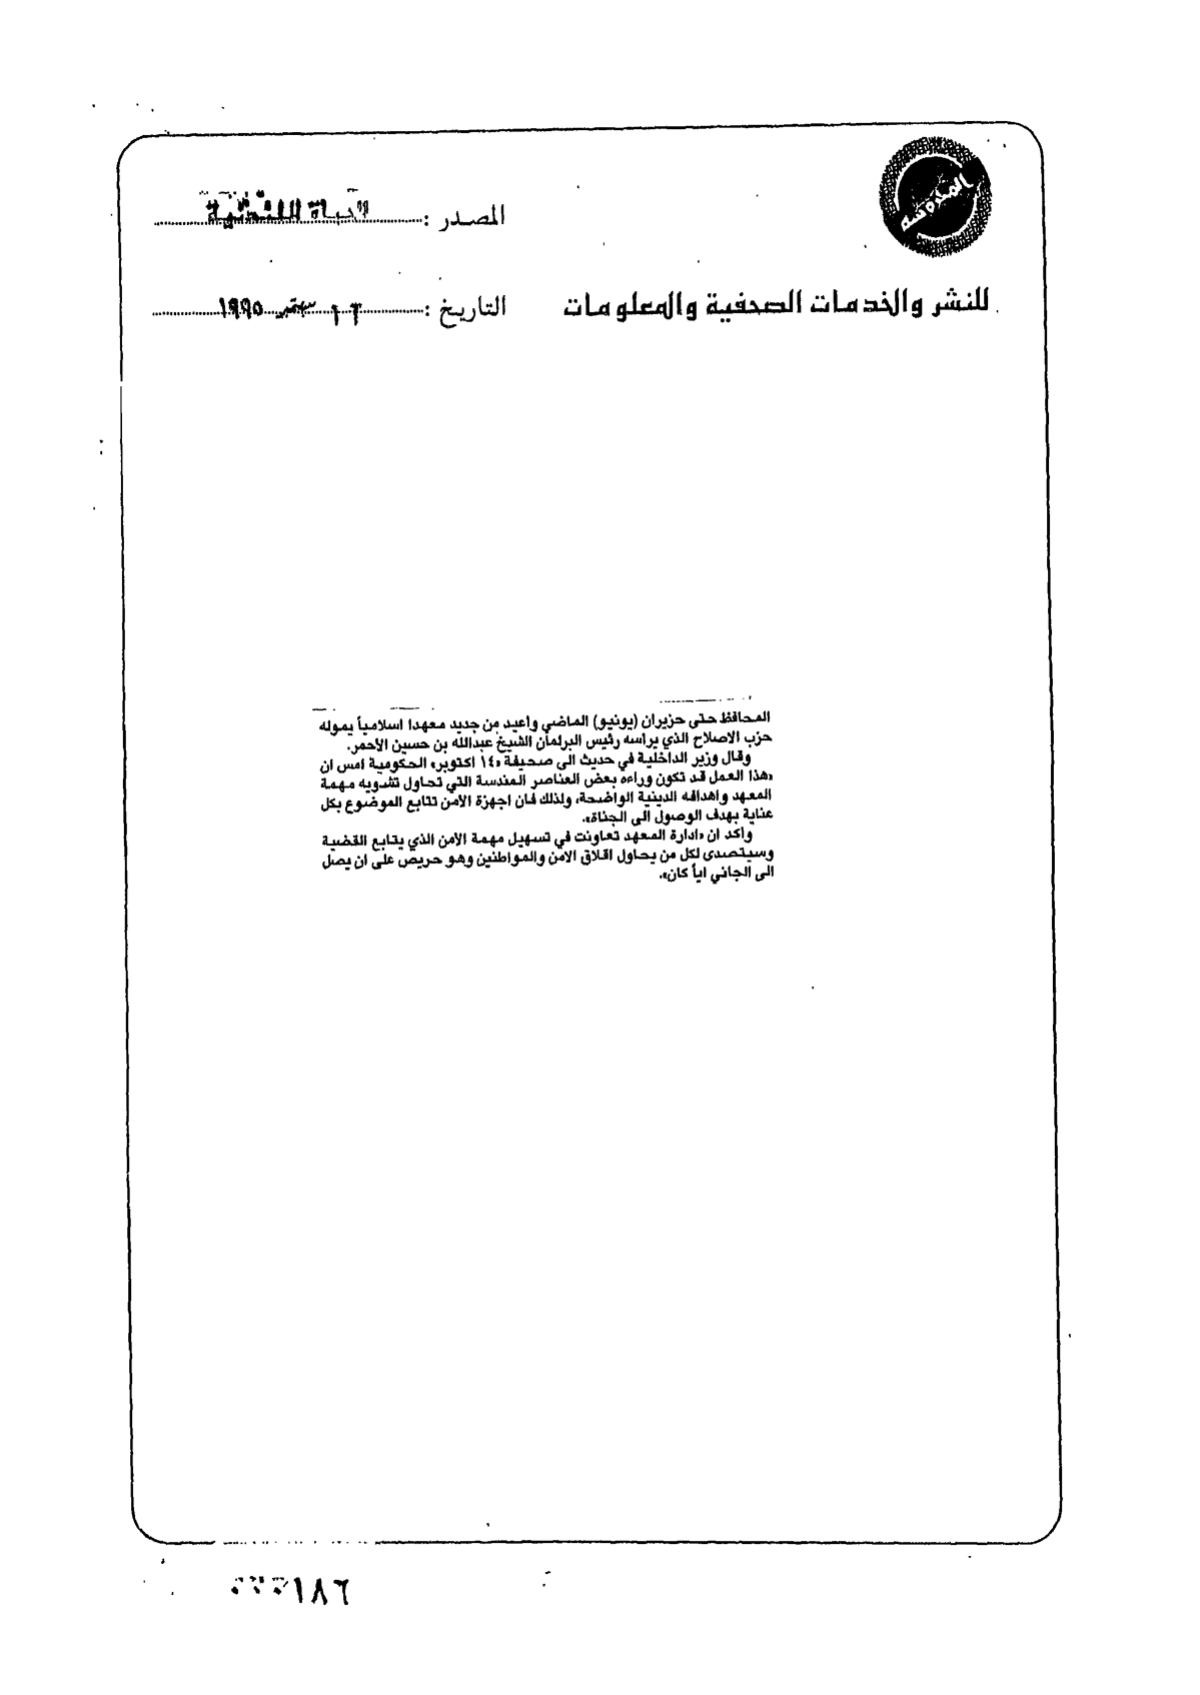 المصدر : الحياة اللندنية
للنشر والخدمات الصحفية والمعلومات
التاريخ : ١٦ سبتمبر ١٩٩٥
المحافظ حتى حزيران (يونيو) الماضي واعيد من جديد معهدا اسلامياً يموله
حزب الاصلاح الذي يراسه رئيس البرلمان الشيخ عبدالله بن حسين الأحمر.
وقال وزير الداخلية في حديث الى صحيفة «١٤ اكتوبر» الحكومية امس ان
«هذا العمل قد تكون وراءه بعض العناصر المندسة التي تحاول تشويه مهمة
المعهد واهدافه الدينية الواضحة، ولذلك فان اجهزة الأمن تتابع الموضوع بكل
عناية بهدف الوصول الى الجناة».
واكد ان «ادارة المعهد تعاونت في تسهيل مهمة الأمن الذي يتابع القضية
وسيتصدى لكل من يحاول اقلاق الأمن والمواطنين وهو حريص على ان يصل
الى الجاني اياً كان».
١٨٦